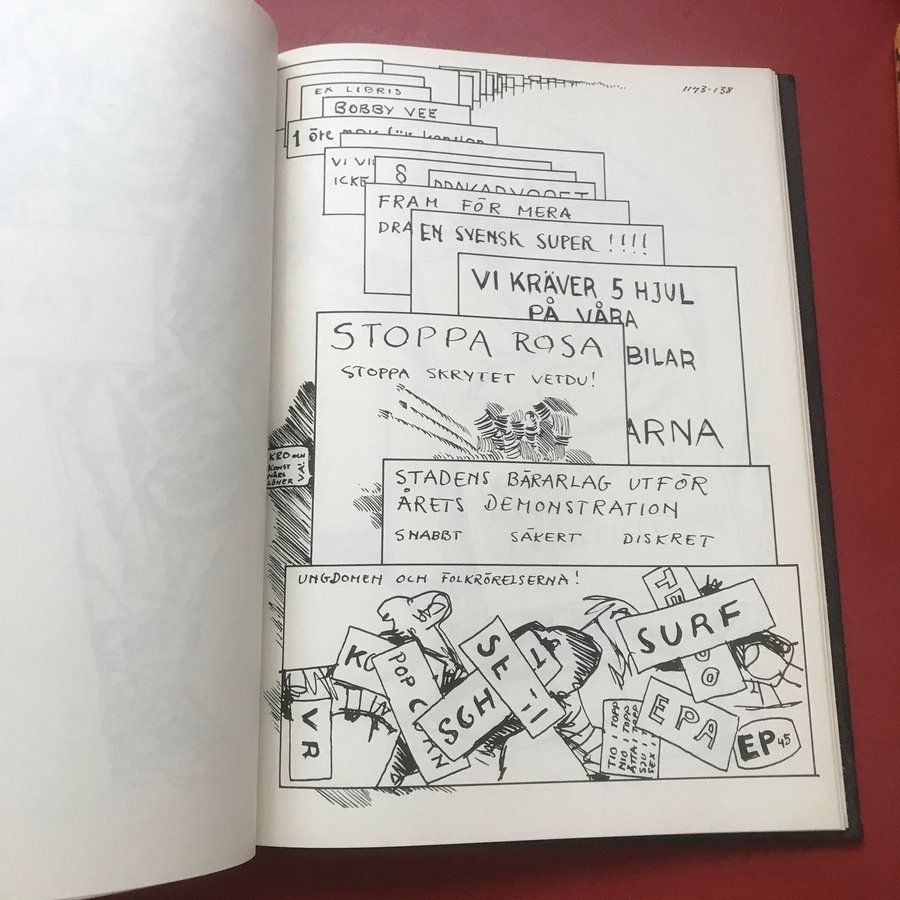 1143-138
EX LIBRIS
BOBBY VEE
1 öre
VI VI
ICKE
8
FRAM FÖR MERA
DRA
EN SVENSK SUPER !!!!
VI KRÄVER 5 HJUL
PÅ VÅRA
BILAR
ARNA
STOPPA ROSA
STOPPA SKRYTET VETDU!
KRO OCH
KONST
NÄRS
LÖNER
VA!
STADENS BÄRARLAG UTFÖR
ÅRETS DEMONSTRATION
SNABBT SÄKERT DISKRET
UNGDOMEN OCH FOLKRÖRELSERNA!
SURF
SE-!!
POP CORN
SCH
VR
EPA
EP 45
TIO I TOPP
NIO I TOPP
ÅTTA I TOPP
SJU I T
SEX I